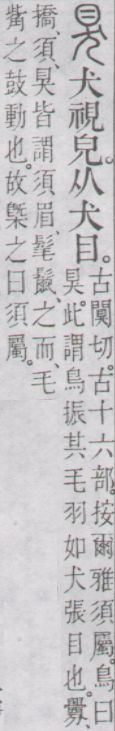 狊犬視皃。从犬目。
古闃切。古十六部。按爾雅須屬。鳥曰
狊。此謂鳥振其毛羽如犬張目也。釁、
撟、須、狊皆謂須眉髦鬣之而、毛
觜之鼓動也。故槩之曰須屬。